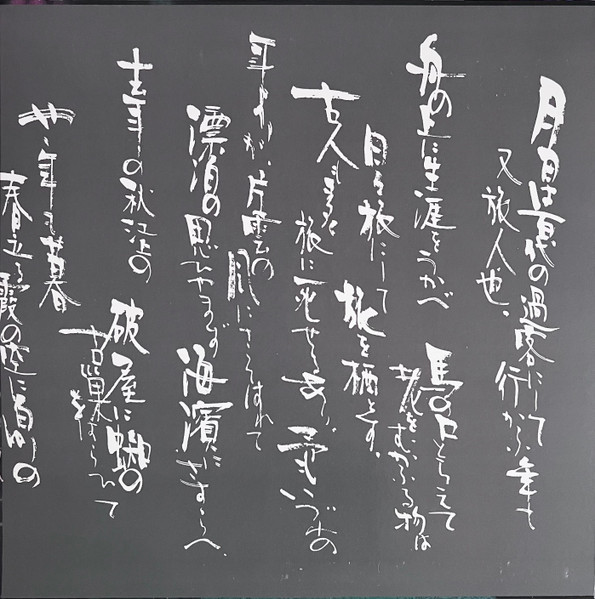 月日は百代の過客にして
行かふ年も
又旅人也
舟の上に生涯をうかべ
馬の口とらえて
老をむかふる物は
日々旅にして
旅を栖とす
古人も多く
旅に死せるあり
予もいづれの
年よりか片雲の
風にさそはれて
漂泊の思ひやまず
海濱にさすらへ
去年の秋江上の
破屋に蜘の
古巣をはらひて
やゝ年も暮
春立る霞の空に白川の